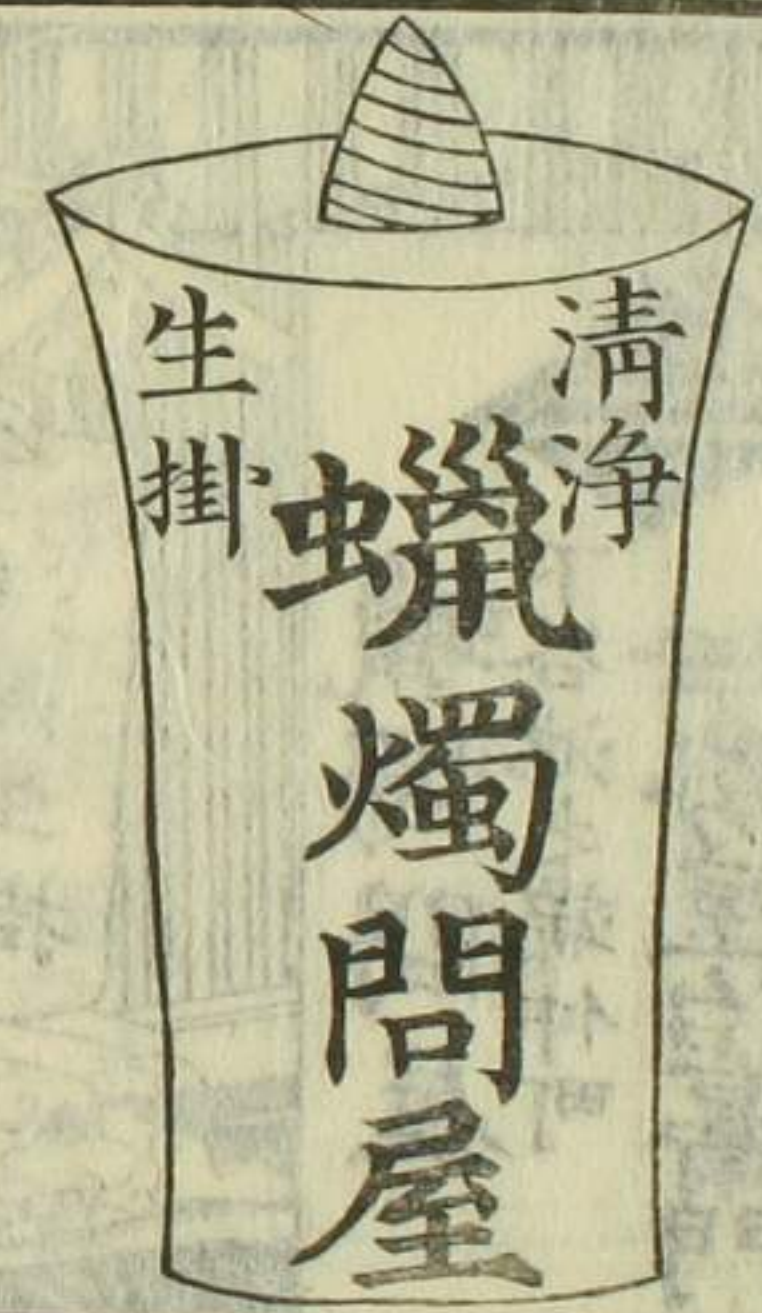 清浄
蠟燭問屋
生掛